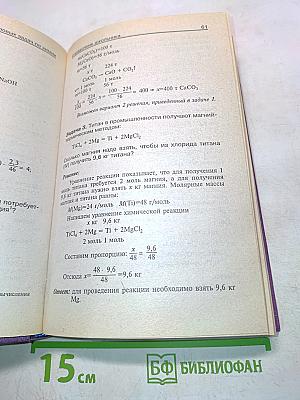 61
M(CaCO₃)=100 г
x т 224 т
CaCO₃ → CaO + CO₂↑
1 моль 1 моль
100 т 56 т
x/100 = 224/56 x = 100 · 224/56 = 400 = x=400 т CaCO₃
Возможен вариант 2 решения, приведённый в задаче 1.
Задача 3. Титан в промышленности получают магний-
термическим методом:
TiCl₄ + 2Mg = Ti + 2MgCl₂
Сколько магния надо взять, чтобы из хлорида титана
(IV) получить 9,6 кг титана?
Решение:
Уравнение реакции показывает, что для получения 1
моль титана требуется 2 моль магния, а для получения
9,6 кг титана нужно взять x кг магния. Молярные массы
магния и титана равны:
M(Mg)=24 г/моль M(Ti)=48 г/моль
Напишем уравнение химической реакции
x кг 9,6 кг
TiCl₄ + 2Mg = Ti + 2MgCl₂
2 моль 1 моль
Составим пропорцию: x/48 = 9,6/48
Отсюда x= 48 · 9,6/48 =9,6 кг
Ответ: для проведения реакции необходимо взять 9,6 кг
Mg.
NaOH
2,3/46 = 4.
потребует-
ычисления
15 см
БФ БИБЛИОФАН